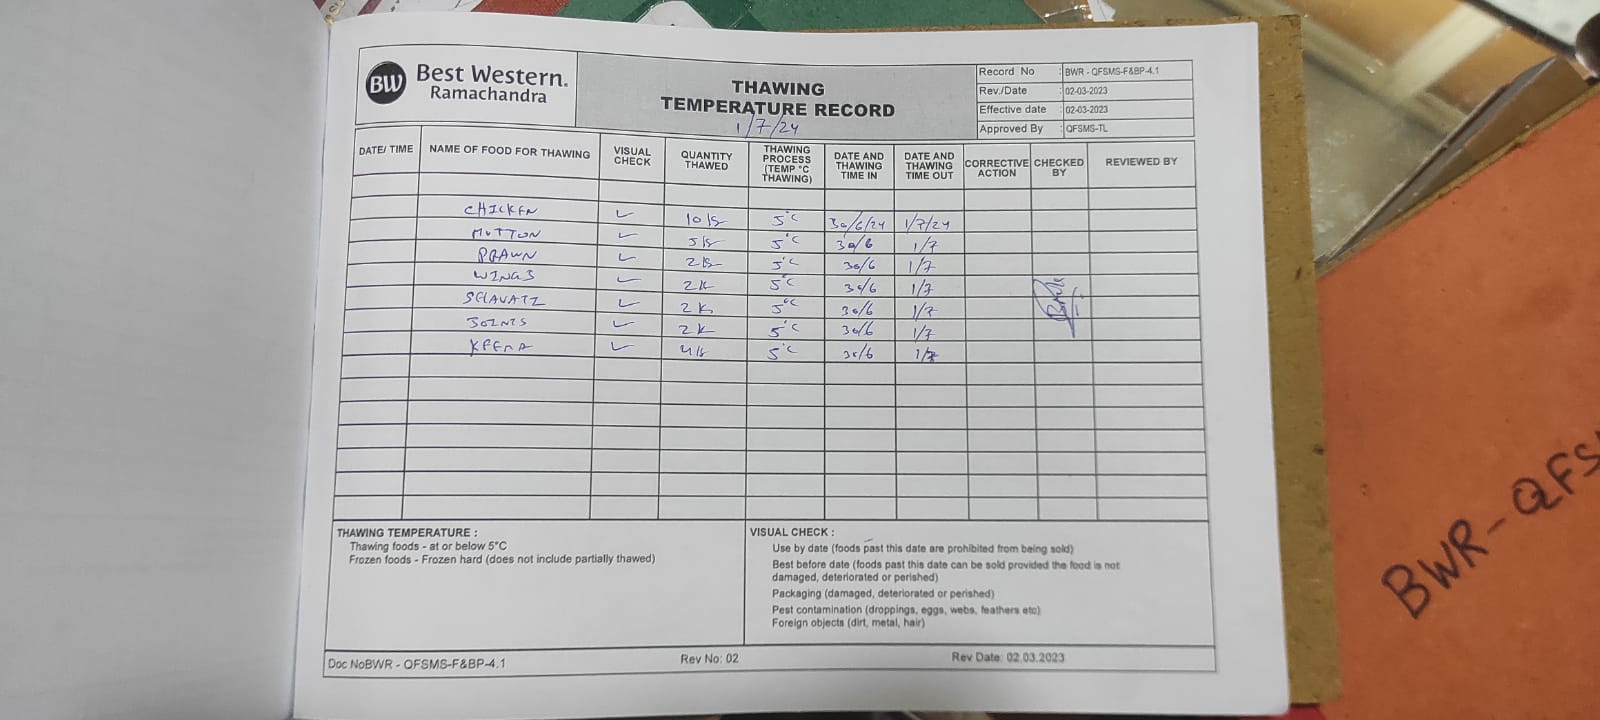 BW Best Western.
Ramachandra
THAWING
TEMPERATURE RECORD
1/7/24
Record No : BWR - QFSMS-F&BP-4.1
Rev./Date : 02-03-2023
Effective date : 02-03-2023
Approved By : QFSMS-TL
DATE/ TIME NAME OF FOOD FOR THAWING VISUAL CHECK QUANTITY THAWED THAWING PROCESS (TEMP °C THAWING) DATE AND THAWING TIME IN DATE AND THAWING TIME OUT CORRECTIVE ACTION CHECKED BY REVIEWED BY
CHICKEN ✓ 10 5°C 30/6/24 1/7/24
MUTTON ✓ 5 5°C 30/6 1/7
PRAWN ✓ 2 5°C 30/6 1/7
WINGS ✓ 2K 5°C 30/6 1/7
✓ 2K 5°C 30/6 1/7
JOINTS ✓ 2K 5°C 30/6 1/7
KEEMA ✓ 4 5°C 30/6 1/7
THAWING TEMPERATURE :
Thawing foods - at or below 5°C
Frozen foods - Frozen hard (does not include partially thawed)
VISUAL CHECK :
Use by date (foods past this date are prohibited from being sold)
Best before date (foods past this date can be sold provided the food is not
damaged, deteriorated or perished)
Packaging (damaged, deteriorated or perished)
Pest contamination (droppings, eggs, webs, feathers etc)
Foreign objects (dirt, metal, hair)
Doc NoBWR - QFSMS-F&BP-4.1 Rev No: 02 Rev Date: 02.03.2023
BWR-QFS